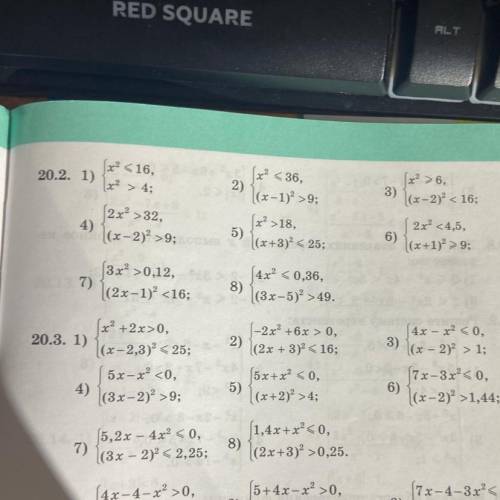 RED SQUARE
ALT
20.2. 1) { x² ⩽ 16, x² > 4;
2) { x² ⩽ 36, (x−1)² > 9;
3) { x² > 6, (x−2)² < 16;
4) { 2x² > 32, (x−2)² > 9;
5) { x² > 18, (x+3)² ⩽ 25;
6) { 2x² < 4,5, (x+1)² ⩾ 9;
7) { 3x² > 0,12, (2x−1)² < 16;
8) { 4x² ⩽ 0,36, (3x−5)² > 49.
20.3. 1) { x² + 2x > 0, (x−2,3)² ⩽ 25;
2) { −2x² + 6x > 0, (2x + 3)² ⩽ 16;
3) { 4x − x² ⩽ 0, (x − 2)² > 1;
4) { 5x − x² < 0, (3x − 2)² > 9;
5) { 5x + x² ⩽ 0, (x+2)² > 4;
6) { 7x − 3x² ⩽ 0, (x−2)² > 1,44;
7) { 5,2x − 4x² ⩽ 0, (3x − 2)² ⩽ 2,25;
8) { 1,4x + x² ⩽ 0, (2x+3)² > 0,25.
4x − 4 − x² > 0,
5 + 4x − x² > 0,
7x − 4 − 3x²